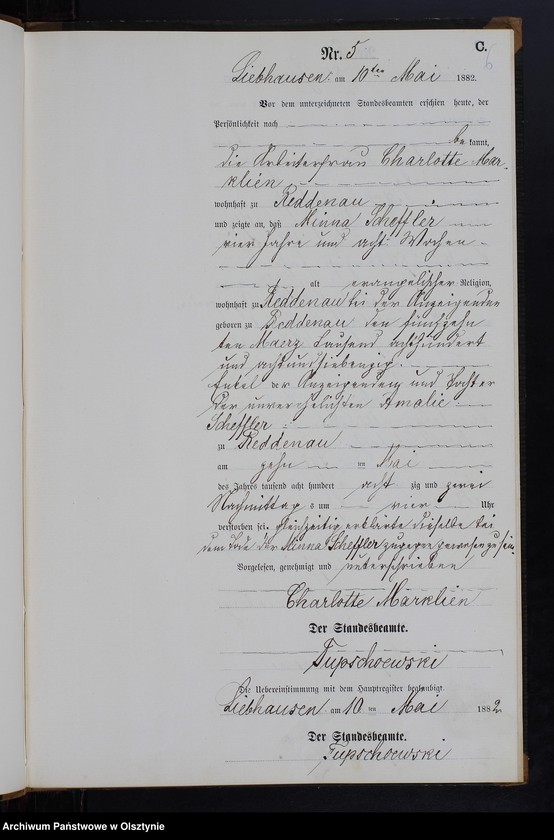 Nr. 5
C.
6
Liebhausen am 10ten Mai 1882.
Vor dem unterzeichneten Standesbeamten erschien heute, der
Persönlichkeit nach
be kannt,
die Arbeiterfrau Charlotte Mar-
klien
wohnhaft zu Reddenau
und zeigte an, daß Minna Scheffler
vier Jahre und acht Wochen
alt evangelischer Religion,
wohnhaft zu Reddenau bei der Anzeigenden
geboren zu Reddenau den fünfzehn
ten Maerz tausend achthundert
und achtundsiebenzig.
Enkel der Anzeigenden und Tochter
der unverehelichten Amalie
Scheffler
zu Reddenau
am zehn ten Mai
des Jahres tausend acht hundert acht zig und zwei
Nachmittags um vier Uhr
verstorben sei. Gleichzeitig erklärte dieselbe bei
dem Tode der Minna Scheffler zugegen gewesen zu sein.
Vorgelesen, genehmigt und unterschrieben
Charlotte Marklien
Der Standesbeamte.
Tupschoewski
Die Uebereinstimmung mit dem Hauptregister beglaubigt
Liebhausen am 10 ten Mai 1882
Der Standesbeamte.
Tupschoewski
Archiwum Państwowe w Olsztynie